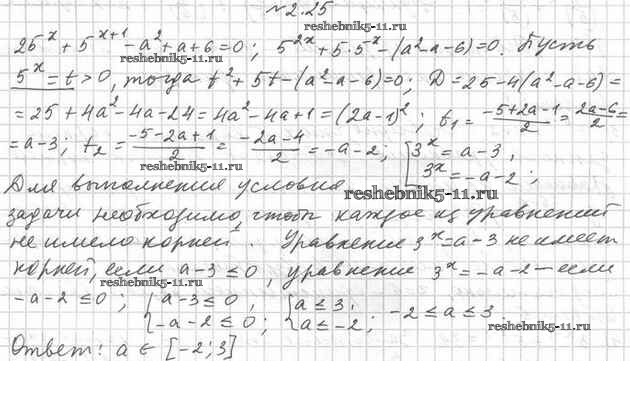 №2.25
reshebnik5-11.ru
25^x + 5^{x+1} - a^2 + a + 6 = 0; 5^{2x} + 5·5^x - (a^2 - a - 6) = 0. Пусть
reshebnik5-11.ru
5^x = t > 0, тогда t^2 + 5t - (a^2 - a - 6) = 0; D = 25 - 4(a^2 - a - 6) =
= 25 + 4a^2 - 4a - 24 = 4a^2 - 4a + 1 = (2a-1)^2; t_1 = \frac{-5+2a-1}{2} = \frac{2a-6}{2} =
= a - 3; t_2 = \frac{-5-2a+1}{2} = \frac{-2a-4}{2} = -a - 2; [3^x = a - 3, 3^x = -a - 2;
reshebnik5-11.ru
Для выполнения условия
reshebnik5-11.ru
задачи необходимо, чтобы каждое из уравнений
не имело корней. Уравнение 3^x = a - 3 не имеет
корней, если a - 3 ≤ 0, уравнение 3^x = -a - 2 — если
reshebnik5-11.ru
-a - 2 ≤ 0; {a - 3 ≤ 0, -a - 2 ≤ 0; {a ≤ 3, a ≤ -2; -2 ≤ a ≤ 3.
reshebnik5-11.ru
Ответ: a ∈ [-2; 3]